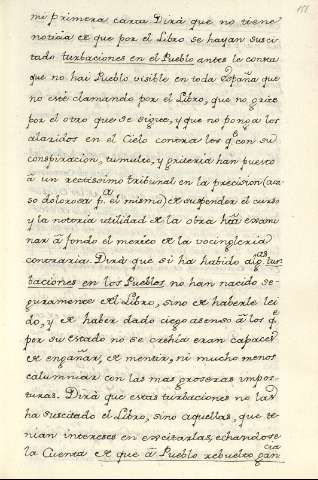 158
mi primera carta Dirà que no tiene
noticia de que por el Libro se hayan susci
tado turbaciones en el Pueblo antes le consta
que no hai Pueblo visible en toda España que
no esté clamando por el Libro, que no grite
por el otro que se sigue, y que no ponga los
alaridos en el Cielo contra los qe con su
conspiración, tumulto, y griteria han puesto
à un rectissimo tribunal en la precision (aca
so dolorosa pa el mismo) de suspender el curso
y la notoria utilidad de la obra hta exami
nar à fondo el merito de la vocingleria
contraria. Dirà que si ha habido algas tur
baciones en los Pueblos, no han nacido se-
guramente del Libro, sino de haberle lei
do, y de haber dado ciego asenso à los qe
por su estado no se crehia eran capaces
de engañar, de mentir, ni mucho menos
calumniar con las mas groseras impos-
turas. Dirà que estas turbaciones no las
ha suscitado el Libro, sino aquellas, que te
nian intereses en excitarlas, echandose
la Cuenta de que à Pueblo rebuelto gancia